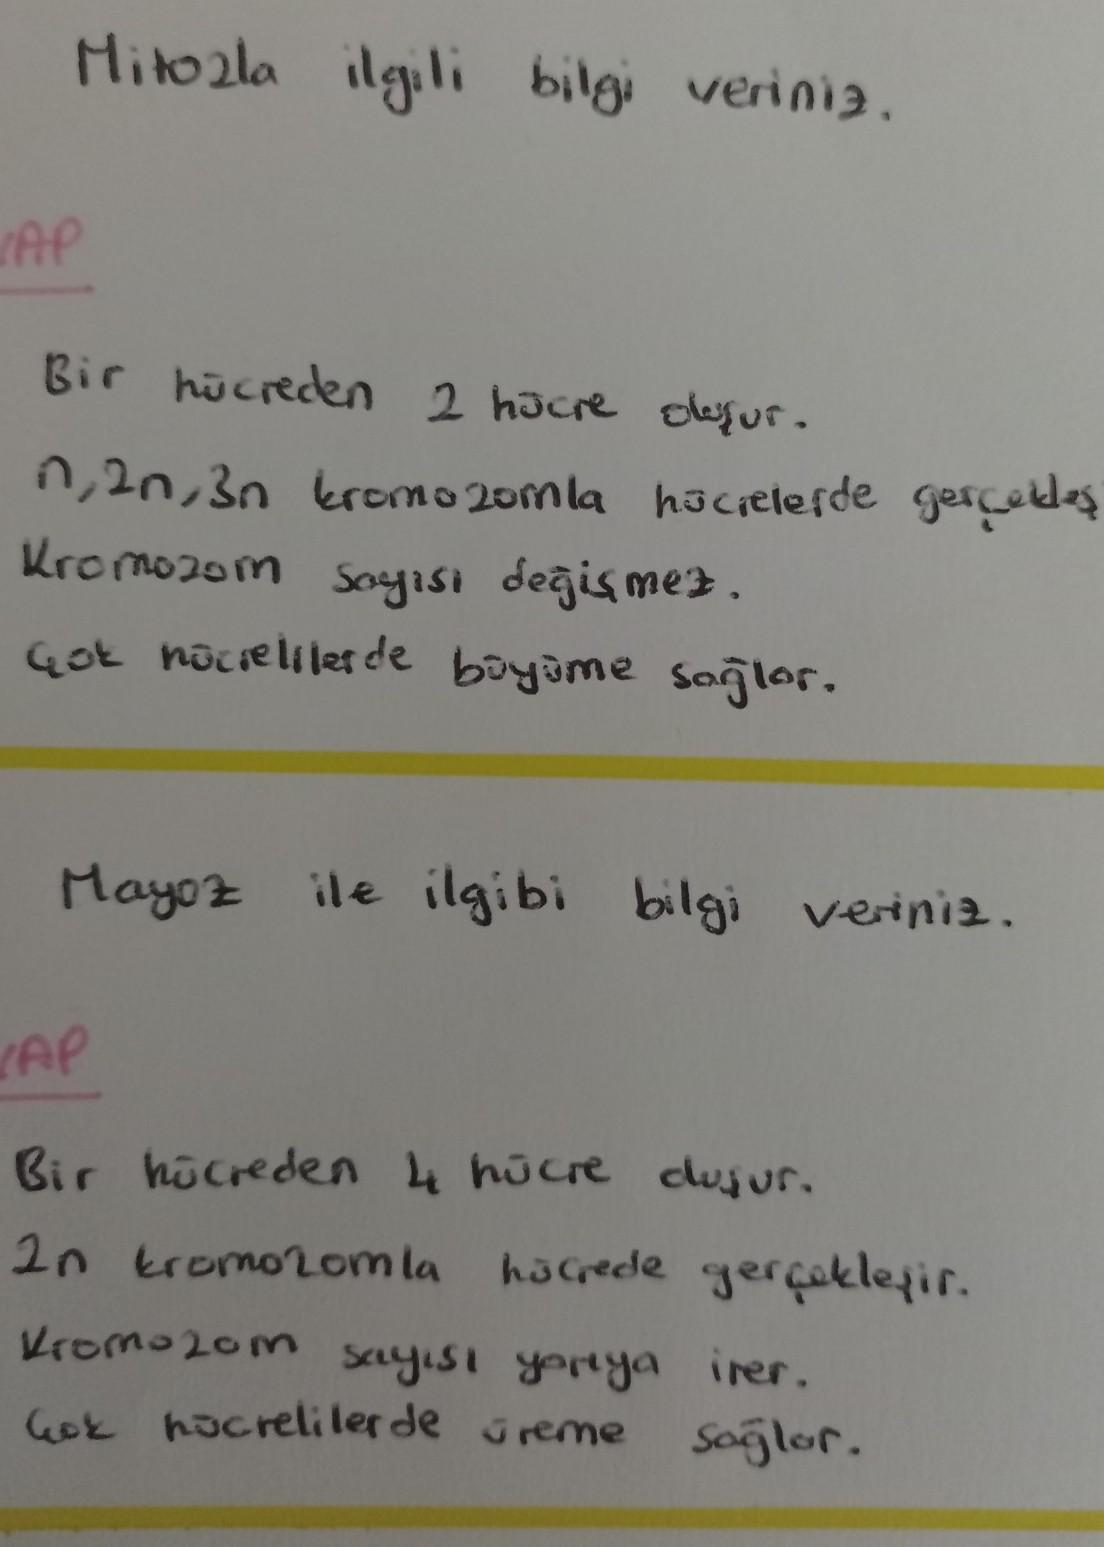 Mitozla ilgili bilgi veriniz.
VAP
Bir hücreden 2 hücre oluşur.
n, 2n, 3n kromozomla hücrelerde gerçekleş
Kromozom sayısı değişmez.
Çok hücrelilerde büyüme sağlar.
Mayoz ile ilgibi bilgi veriniz.
VAP
Bir hücreden 4 hücre oluşur.
2n kromozomla hücrede gerçekleşir.
Kromozom sayısı yarıya iner.
Çok hücrelilerde üreme sağlar.